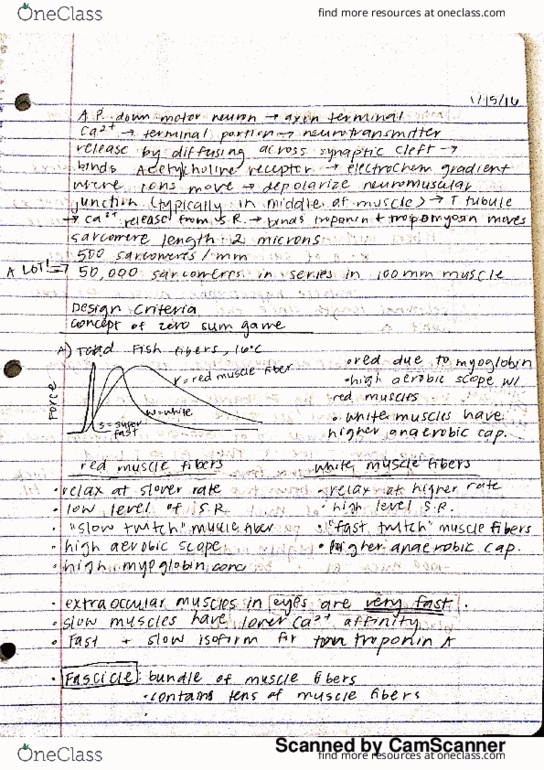 OneClass
find more resources at oneclass.com
1/15/16
A.P. down motor neuron → axon terminal
Ca2+ → terminal portion → neurotransmitter
release by diffusing across synaptic cleft →
binds Acetylcholine receptor → electrochem gradient
where ions move → depolarize neuromuscular
junction (typically in middle of muscle) → T tubule
→ Ca2+ release from S.R. → binds troponin + tropomyosin moves
sarcomere length: 2 microns
500 sarcomeres / mm
A LOT! → 50,000 sarcomeres in series in 100mm muscle
Design Criteria
concept of zero sum game
A) Toad Fish fibers, 16°C
Force
r = red muscle fiber
w = white
s = super
fast
• red due to myoglobin
• high aerobic scope w/
red muscles
• white muscles have
higher anaerobic cap.
red muscle fibers
white muscle fibers
• relax at slower rate
• relax at higher rate
• low level of S.R.
• high level S.R.
• "slow twitch" muscle fiber
• "fast twitch" muscle fibers
• high aerobic scope
• higher anaerobic cap.
• high myoglobin conc
• extraocular muscles in eyes are very fast.
• slow muscles have lower Ca2+ affinity
• fast + slow isoform for troponin A
• Fascicle: bundle of muscle fibers
• contains tens of muscle fibers
Scanned by CamScanner
OneClass
find more resources at oneclass.com